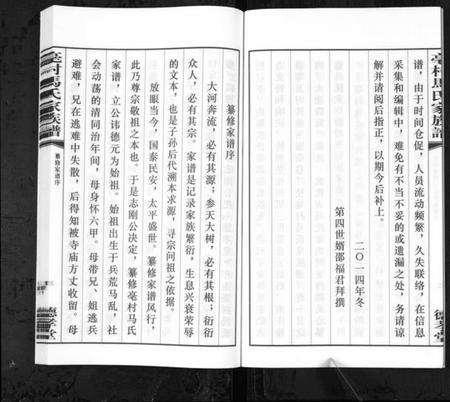 亳村馬氏家族譜
谱，由于时间仓促，人员流动频繁，久失联络，在信息
采集和编辑中，难免有不当不妥的或遗漏之处，务请谅
解并请阅后指正，以期今后补上。
二〇一四年冬
第四世婿邵福君拜撰
德孝堂
纂修家谱序
大河奔流，必有其源；参天大树，必有其根；衍衍
众人，必有其宗。家谱是记录家族繁衍，生息兴衰荣辱
的文本，也是子孙后代溯本求源，寻宗问祖之依据。
放眼当今，国泰民安，太平盛世。纂修家谱风行，
此乃尊宗敬祖之本也。于是志刚公决定，纂修亳村馬氏
家谱，立公讳德元为始祖。始祖出生于兵荒马乱，社
会动荡的清同治年间，母身怀六甲。母带兄、姐逃兵
避难，兄在逃难中失散，后得知被寺庙方丈收留。母
亳村馬氏家族譜
纂修家谱序
德孝堂